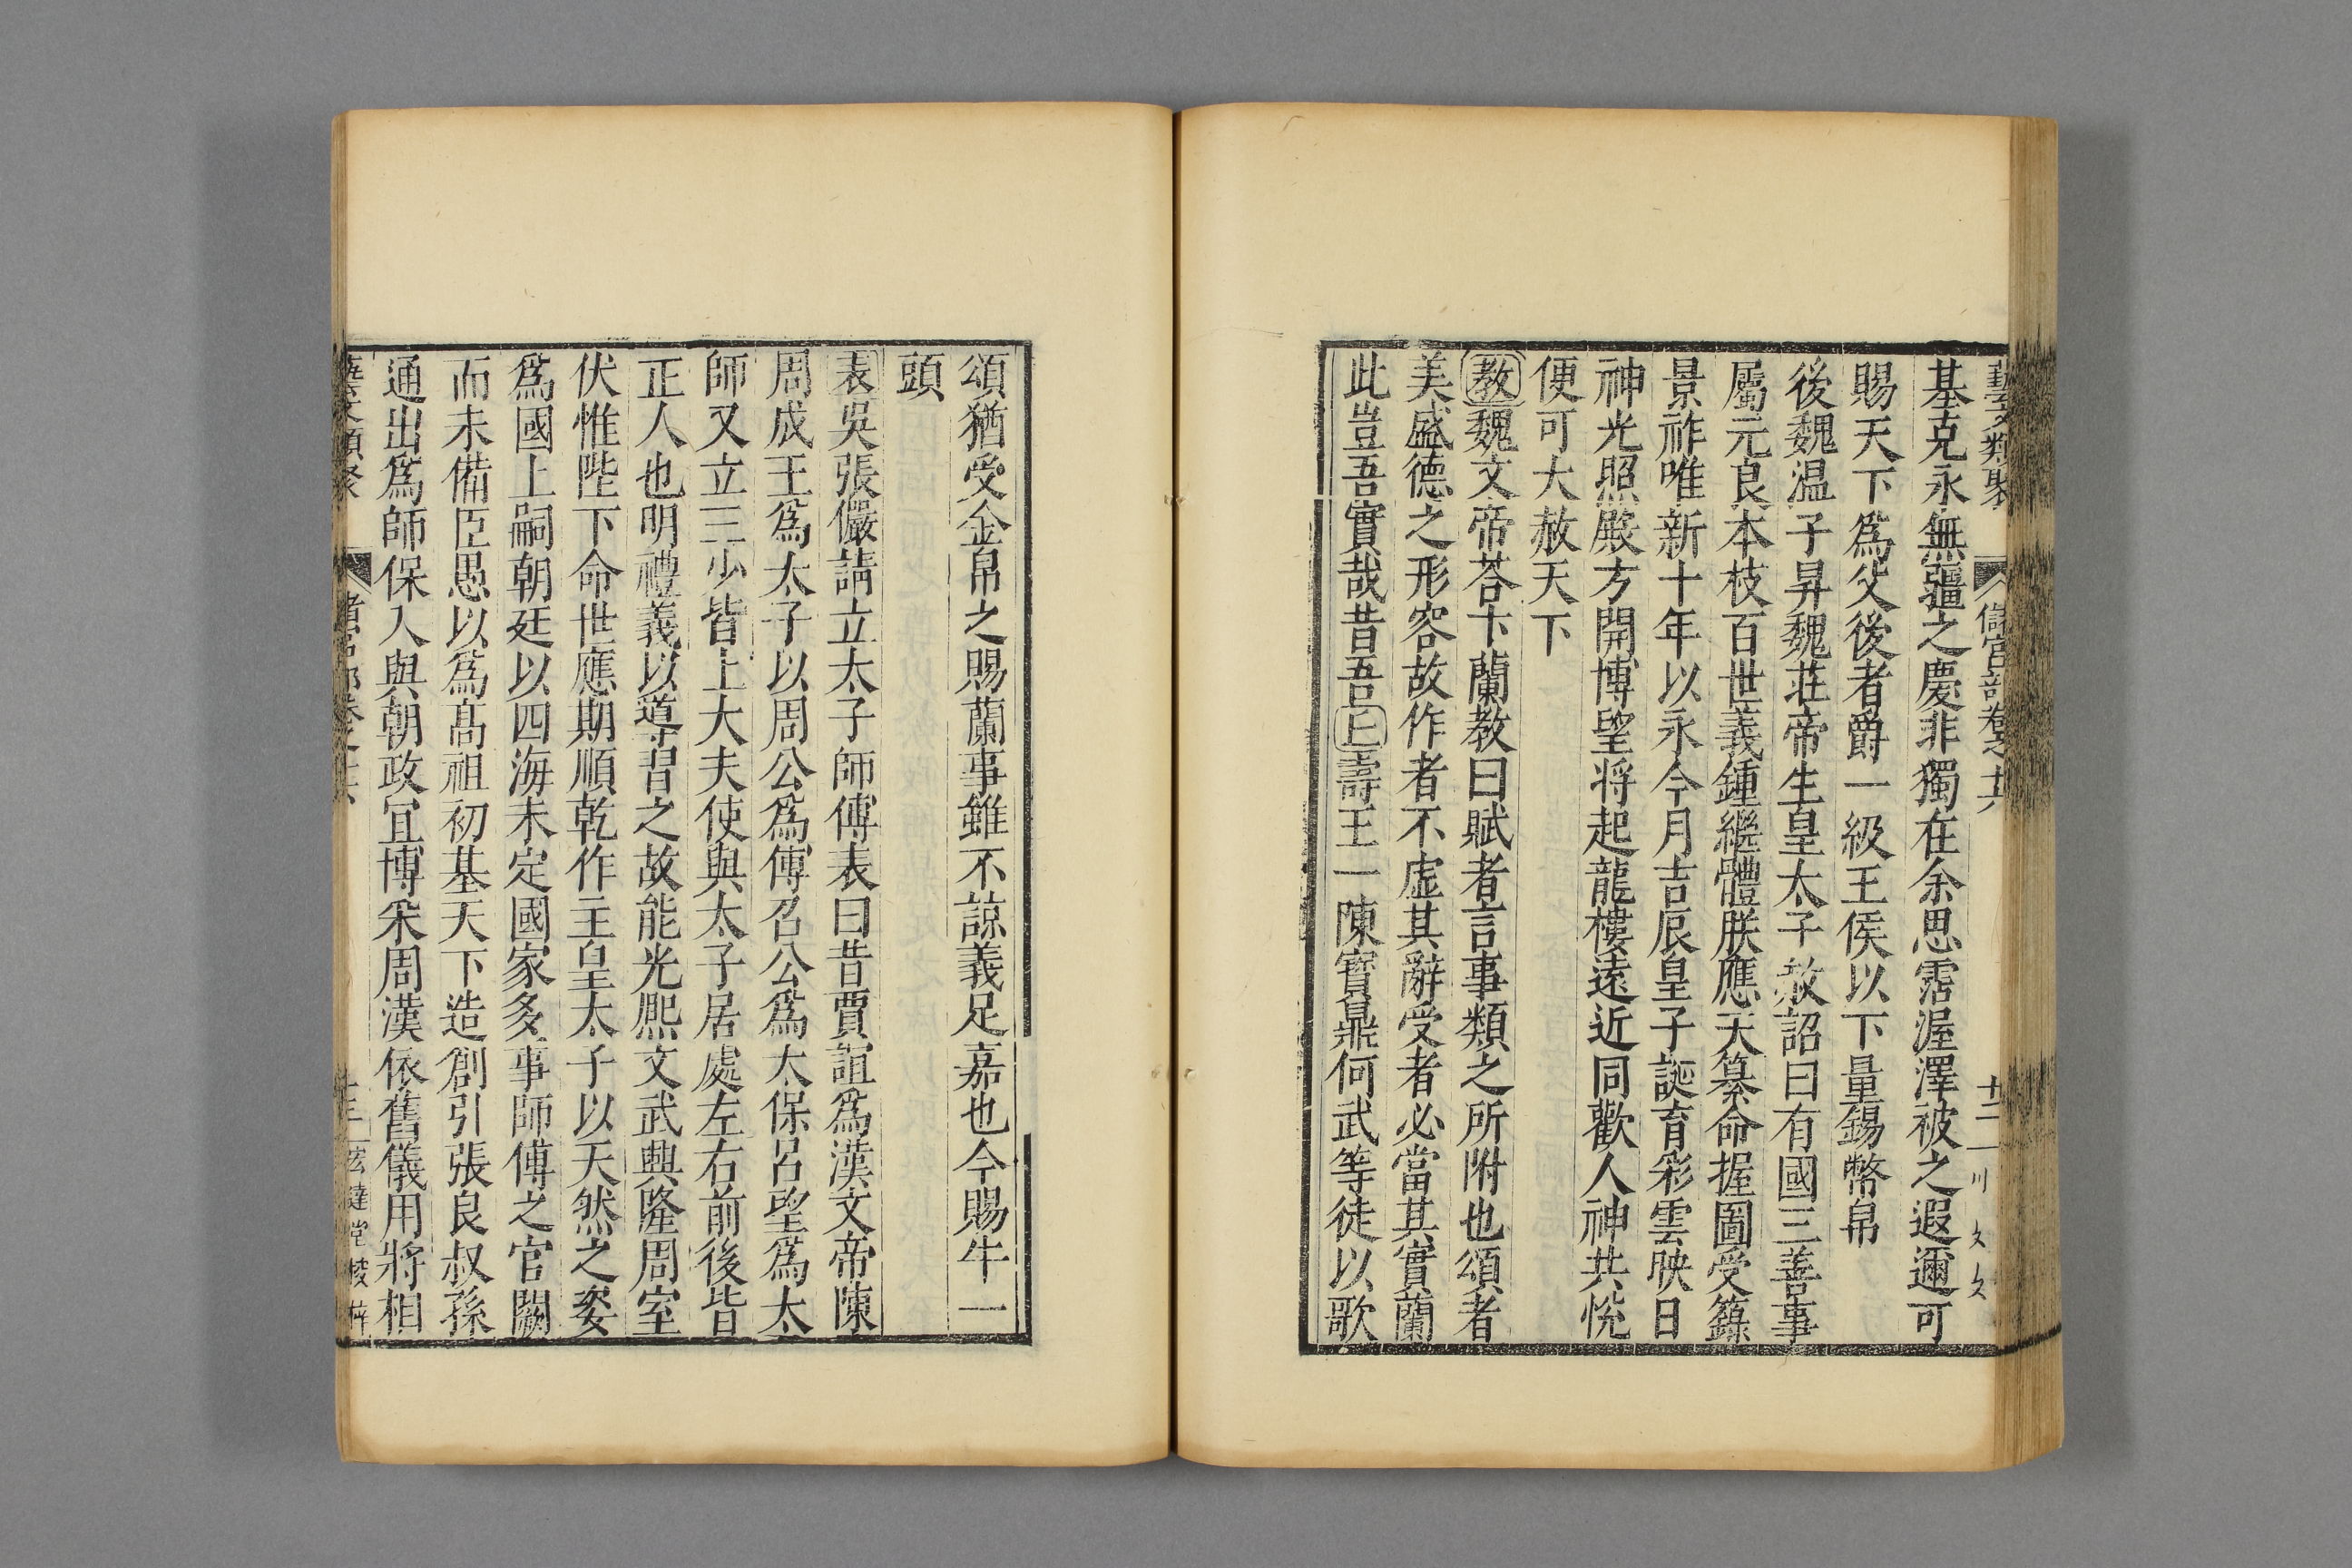 藝文類聚 儲宮部卷之十六 十二 川 文 文
基克永無疆之慶非獨在余思霑渥澤被之遐邇可
賜天下為父後者爵一級王侯以下量錫幣帛
後魏温子昇魏莊帝生皇太子赦詔曰有國三善事
屬元良本枝百世義鍾繼體朕應天纂命握圖受籙
景祚唯新十年以永今月吉辰皇子誕育彩雲映日
神光照殿方開博望将起龍樓遠近同歡人神共悅
便可大赦天下
教魏文帝荅卞蘭教曰賦者言事類之所附也頌者
美盛德之形容故作者不虛其辭受者必當其實蘭
此豈吾實哉昔吾丘壽王一陳寶鼎何武等徒以歌
頌猶受金帛之賜蘭事雖不諒義足嘉也今賜牛一
頭
表吳張儼請立太子師傅表曰昔賈誼為漢文帝陳
周成王為太子以周公為傅召公為太保呂望為太
師又立三少皆上大夫使與太子居處左右前後皆
正人也明禮義以道習之故能光熈文武興隆周室
伏惟陛下命世應期順乾作主皇太子以天然之姿
為國上嗣朝廷以四海未定國家多事師傅之官闕
而未備臣愚以為髙祖初基天下造創引張良叔孫
通出為師保入與朝政冝博采周漢依舊儀用將相
藝文類聚 儲宮部卷之十六 十三 宏達堂校梓